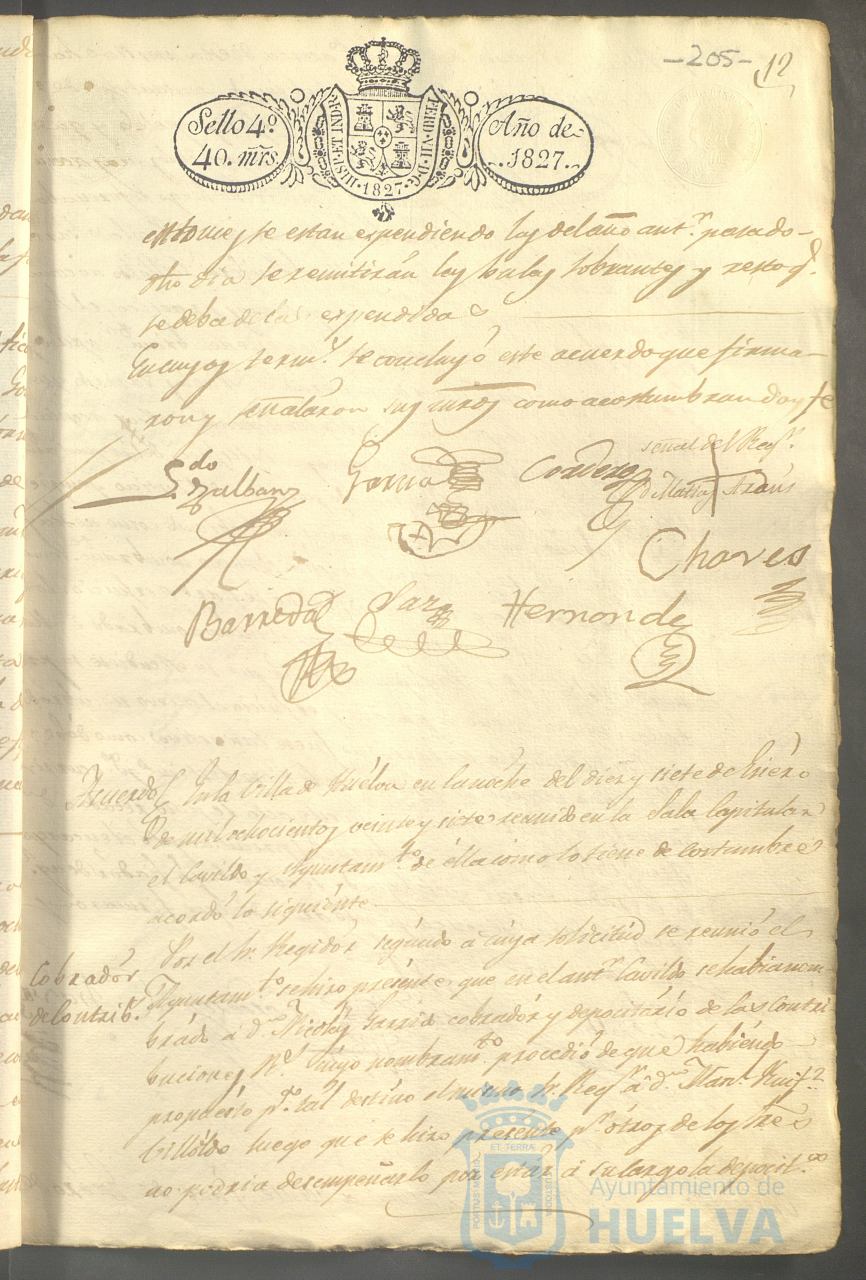 -205-
12
Sello 4º
40. mrs.
HISP. ET INDR. 1827. FERD. VII. D. G.
Año de
1827.
estas se estan expendiendo las del año antr. pasado
otro dia se remitirán las bulas sobrantes y resto q.e
se deba de las expendidas
En cuyos term.s se concluyó este acuerdo que firma-
ron y señalaron sus mrds como acostumbran doy fe
señal del Regr.
Ldo Zalbán Garrido Cordero
D. Matias Araus
Chaves
Barreda Saz Hernandez
Acuerdo En la Villa de Huelva en la noche del diez y siete de Enero
de mil ochocientos veinte y siete reunido en la Sala Capitular
el Cavildo y Ayuntam.to de ella como lo tiene de costumbre
acordó lo siguiente
Cobrador
de Contrib.s
Por el Sr. Regidor segundo a cuya solicitud se reunió el
Ayuntam.to se hizo presente que en el antr. Cavildo se habia nom-
brado á d.n Nicolás Garrido cobrador y depositario de las contri-
buciones Rs. cuyo nombram.to procedió de que habiendo
propuesto pa. tal destino el mismo Sr. Regr. á d.n Manl. Ruifz
Villoldo luego que se hizo presente pr. otros de los Sres
no podria desempeñarlo por estar á su cargo la deposit.a
ET TERRAE
Ayuntamiento de
HUELVA